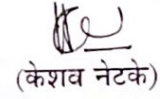 (केशव नेटके)